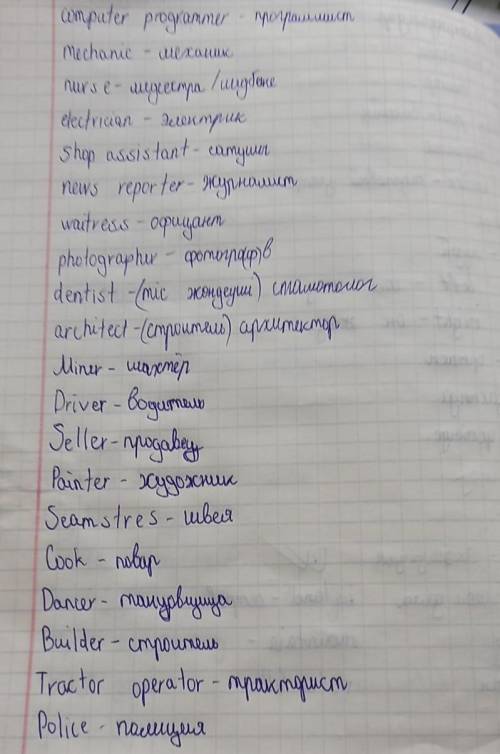 computer programmer - программист
mechanic - механик
nurse - медсестра /
electrician - электрик
shop assistant - сатушы
news reporter - журналист
waitress - официант
photographer -
dentist - (тіс жөндеуші) стаматолог
architect - (строитель) архитектор
Miner - шахтёр
Driver - водитель
Seller - продавец
Painter - художник
Seamstres - швея
Cook - повар
Dancer - танцовщица
Builder - строитель
Tractor operator - тракторист
Police - полиция